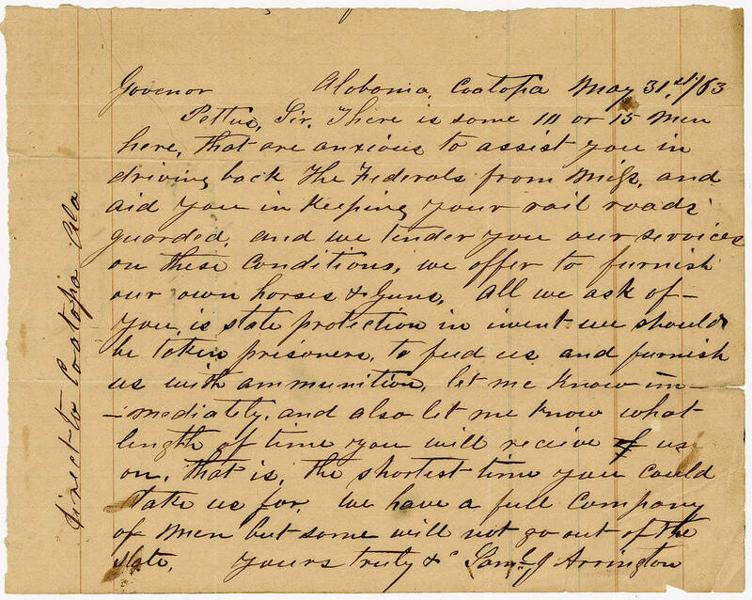 Govenor Alobama, Coatopa May 31st/63
Pettus, Sir. There is some 10 or 15 men
here, that are anxious to assist you in
driving back the Federals from Miss, and
aid you in keeping your rail roads
guarded, and we tender you our services
on these conditions, we offer to furnish
our own horses & guns, All we ask of
you, is state protection in invent we should
be taken prisoners, to feed us and furnish
us with ammunition, let me know im-
-mediately, and also let me know what
length of time you will recieve of us
on, that is, the shortest time you could
take us for. We have a full company
of men but some will not go out of the
state. yours truly &c Saml J Arrington
direct to Coatopa Ala